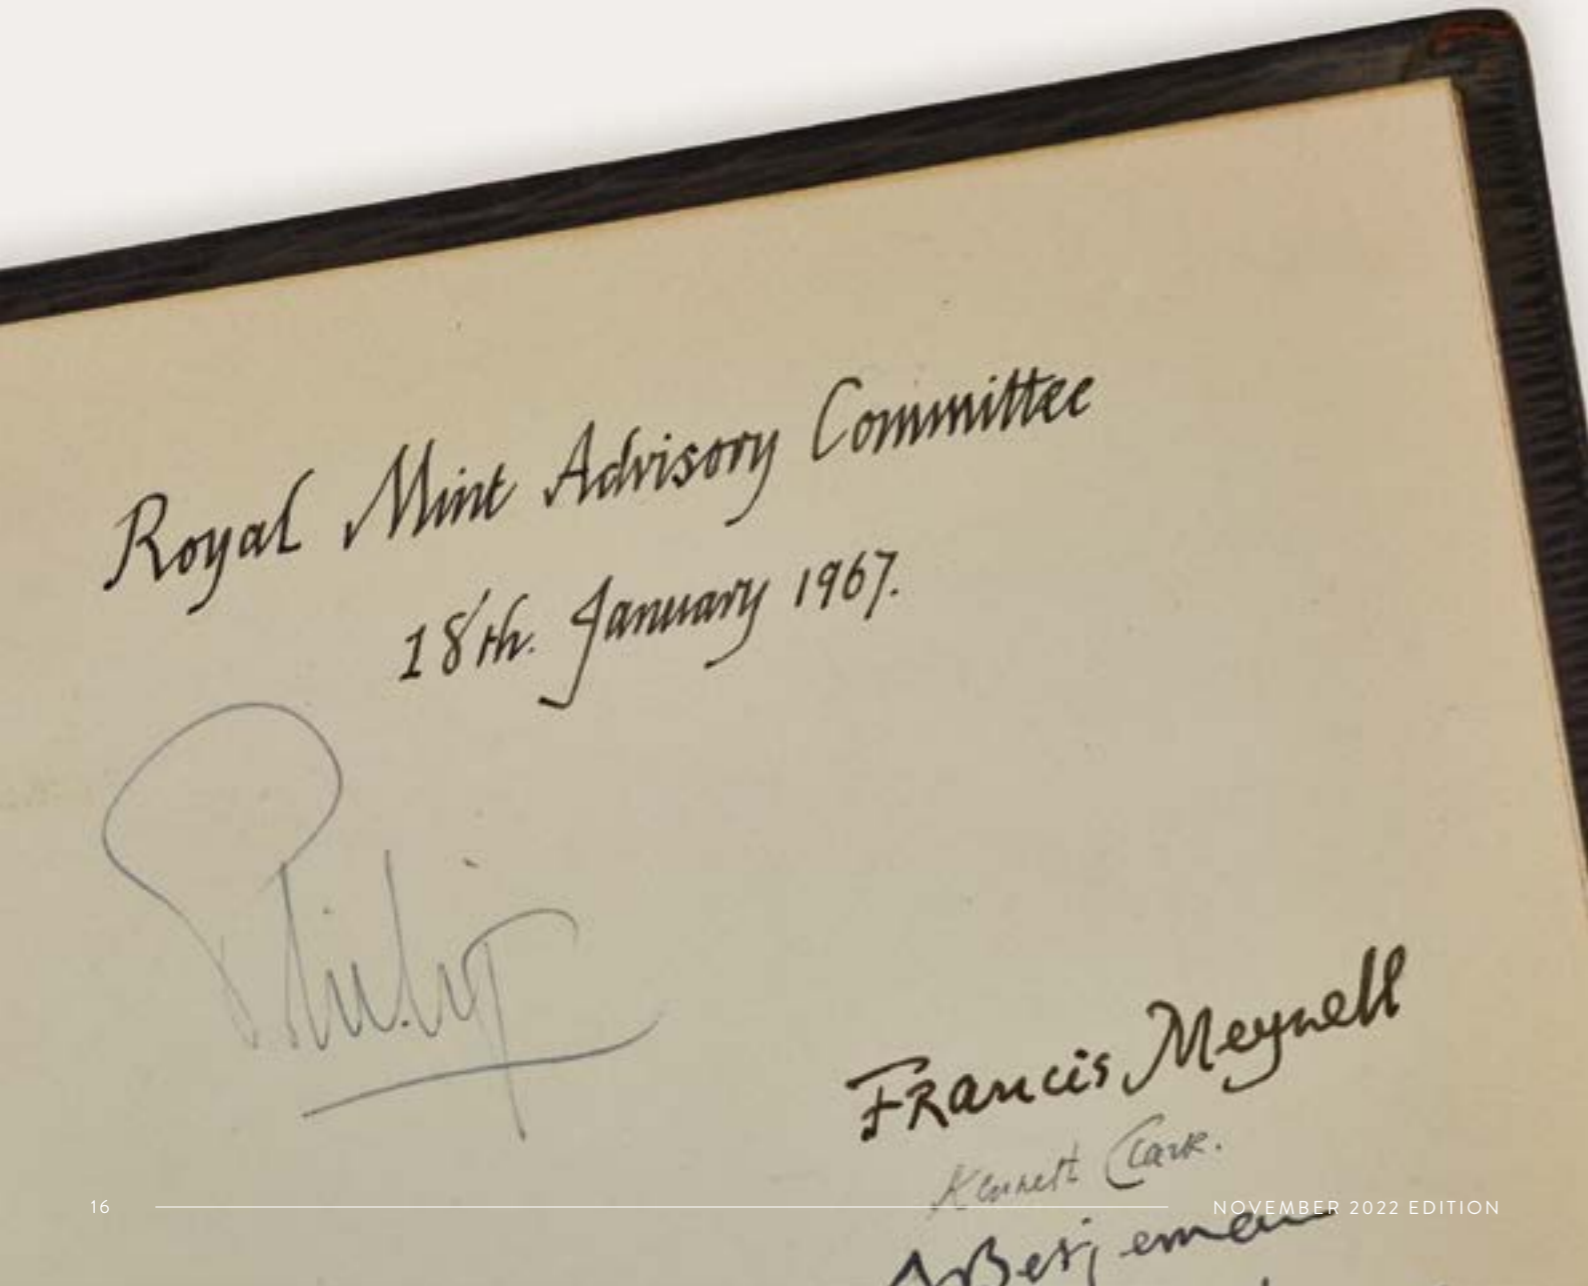 Royal Mint Advisory Committee
18th. January 1967.
Philip
Francis Meynell
Kenneth Clark.
Betjeman
16
NOVEMBER 2022 EDITION